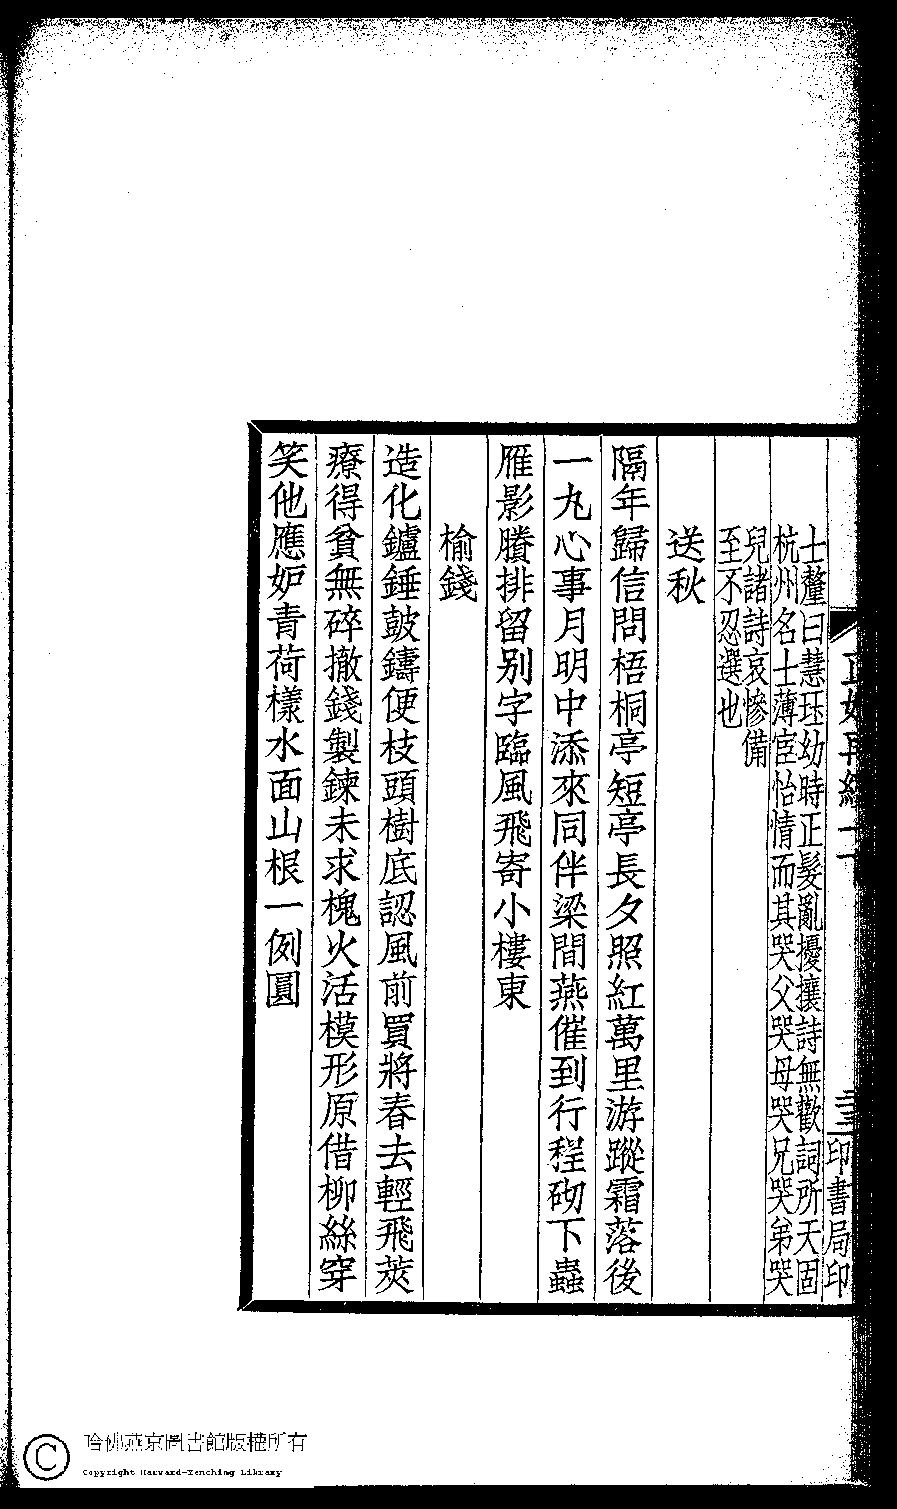 士釐曰慧珏幼時正髮亂擾攘詩無歡詞所天固
杭州名士薄宦怡情而其哭父哭母哭兄哭弟哭
兒諸詩哀慘備
至不忍選也
送秋
隔年歸信問梧桐亭短亭長夕照紅萬里游蹤霜落後
一九心事月明中添來同伴梁間燕催到行程砌下蟲
雁影賸排留别字臨風飛寄小樓東
榆錢
造化鑪錘鼓鑄便枝頭樹底認風前買將春去輕飛莢
療得貧無碎撒錢製鍊未求槐火活模形原借柳絲穿
笑他應妒青荷樣水面山根一例圓
印書局印
哈佛燕京圖書館版權所有
Copyright Harvard-Yenching Library